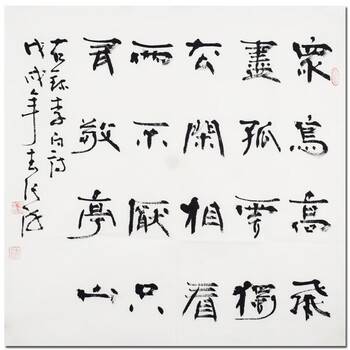 眾鳥高飛
盡孤雲獨
去閑相看
兩不厭只
有敬亭山
右錄李白詩
戊戌年